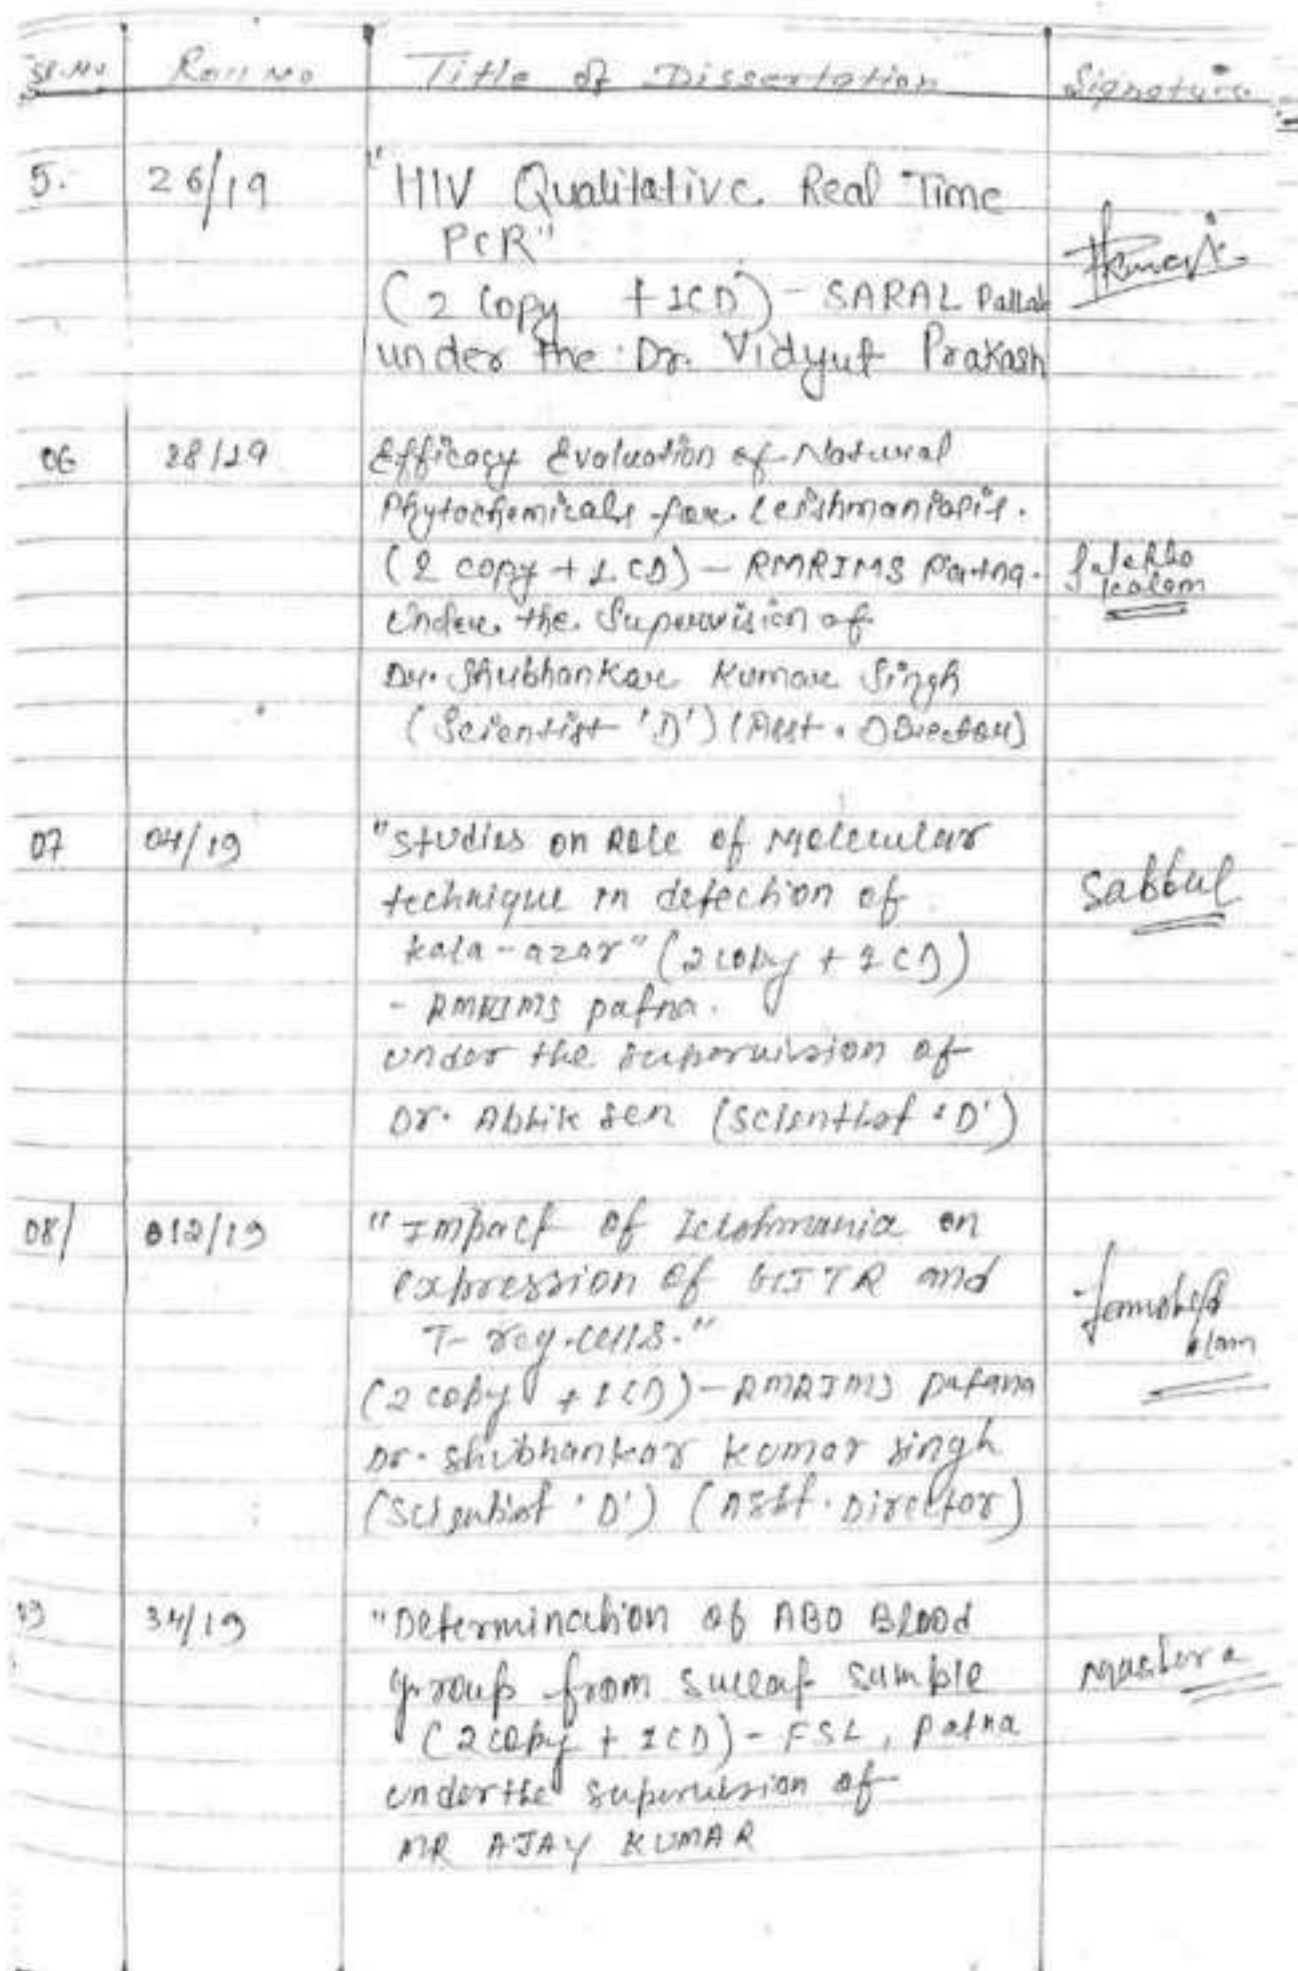 Sl. No Roll No Title of Dissertation Signature
5. 26/19 "HIV Qualitative Real Time
PCR"
(2 Copy + 1CD) - SARAL
under the Dr. Vidyut Prakash
06 28/19 Efficacy Evaluation of Natural
Phytochemicals for Leishmaniasis.
(2 copy + 1 CD) - RMRIMS Patna.
Under the Supervision of
Dr. Shubhankar Kumar Singh
(Scientist 'D') (Asst. Director)
kalam
07 04/19 "Studies on Role of Molecular
technique in detection of
kala-azar" (2 copy + 1 CD)
- RMRIMS patna.
under the supervision of
Dr. Abhik Sen (Scientist 'D')
Sabbul
08/ 012/19 "Impact of Leishmania on
expression of GITR and
T-reg.cells."
(2 copy + 1 CD) - RMRIMS patana
Dr. Shubhankar Kumar Singh
(Scientist 'D') (Asst. Director)
Alam
09 34/19 "Determination of ABO Blood
group from sweat sample
(2 copy + 1 CD) - FSL, Patna
under the supervision of
MR AJAY KUMAR